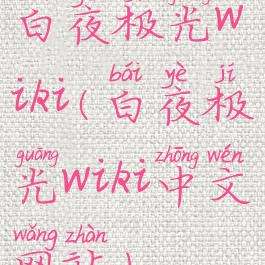 白夜极光w
bái yè jí
iki(白夜极
guāng zhōng wén
光wiki中文
wǎng zhàn
网站)